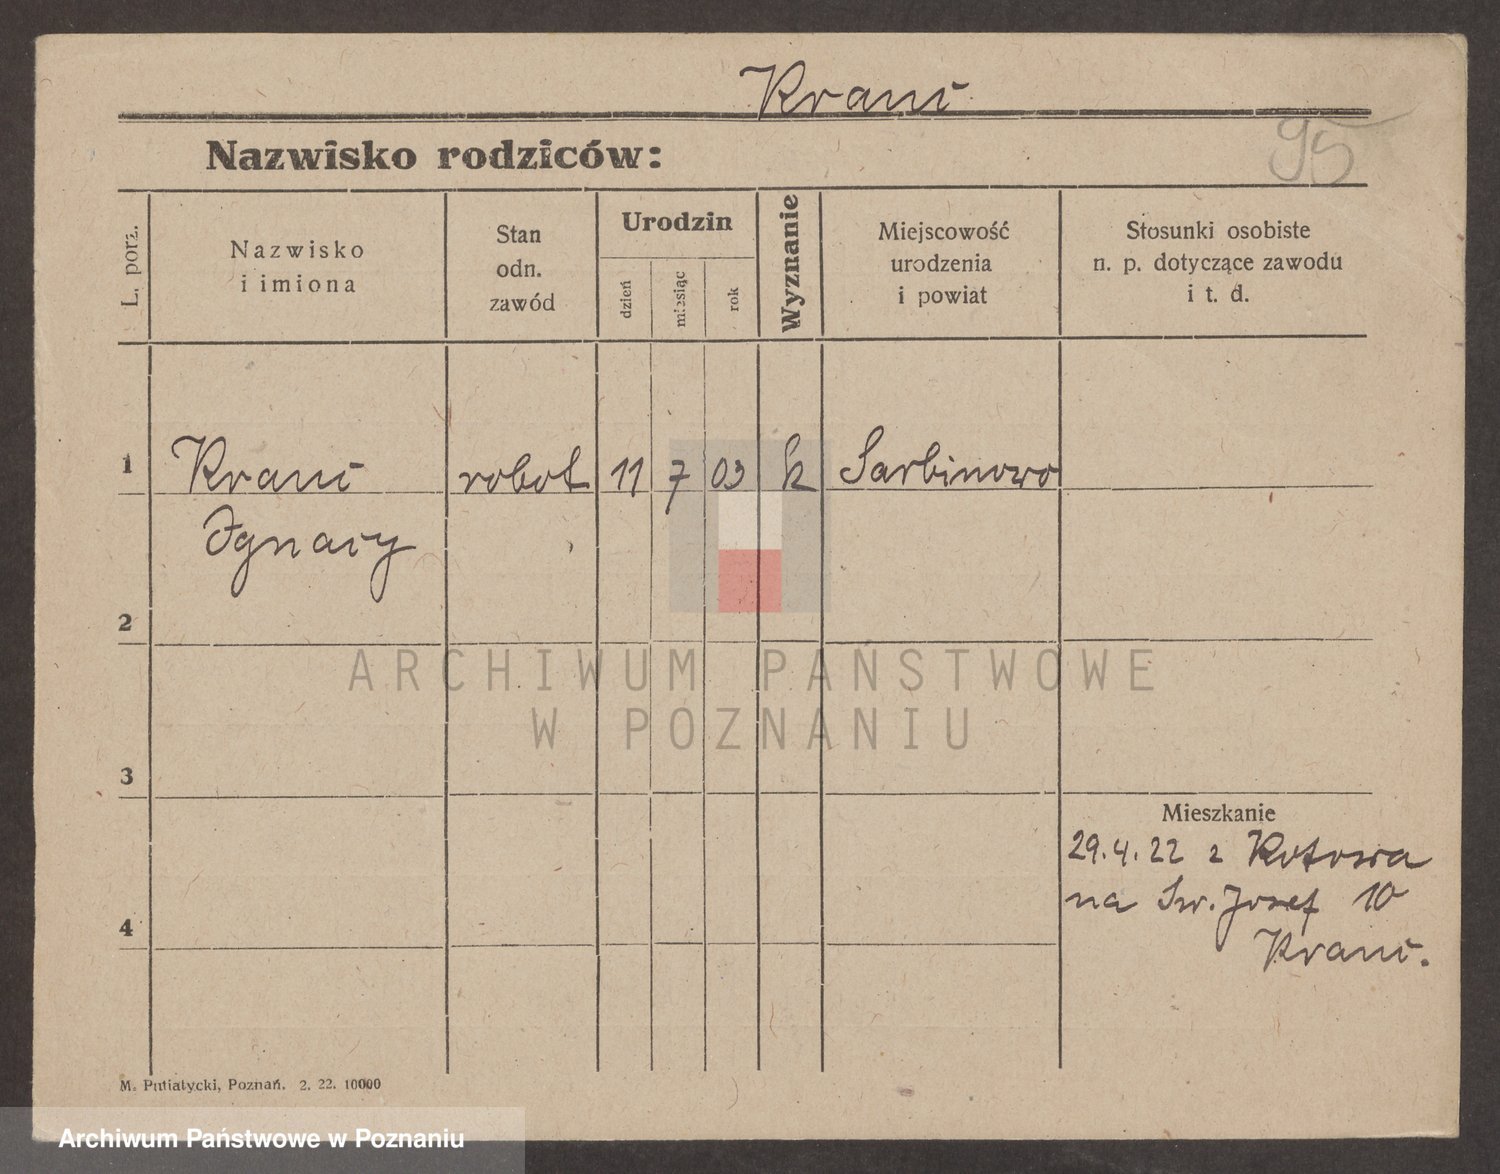 Kranc
95
Nazwisko rodziców:
L. porz.
Nazwisko
i imiona
Stan
odn.
zawód
Urodzin
dzień
miesiąc
rok
Wyznanie
Miejscowość
urodzenia
i powiat
Stosunki osobiste
n. p. dotyczące zawodu
i t. d.
1
Kranc
robot
11
7
03
k
Sarbinowo
Ignacy
2
ARCHIWUM PAŃSTWOWE
W POZNANIU
3
Mieszkanie
29.4.22 z Kotowa
na Św. Józef 10
Kranc.
4
M. Putiatycki, Poznań. 2. 22. 10000
Archiwum Państwowe w Poznaniu